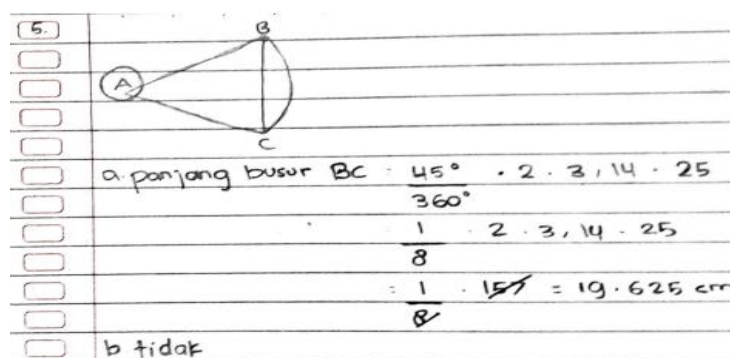 5.
B
A
C
a. panjang busur BC : 45° / 360° · 2 · 3,14 · 25
1/8 · 2 · 3,14 · 25
= 1/8 · 157 = 19.625 cm
b tidak